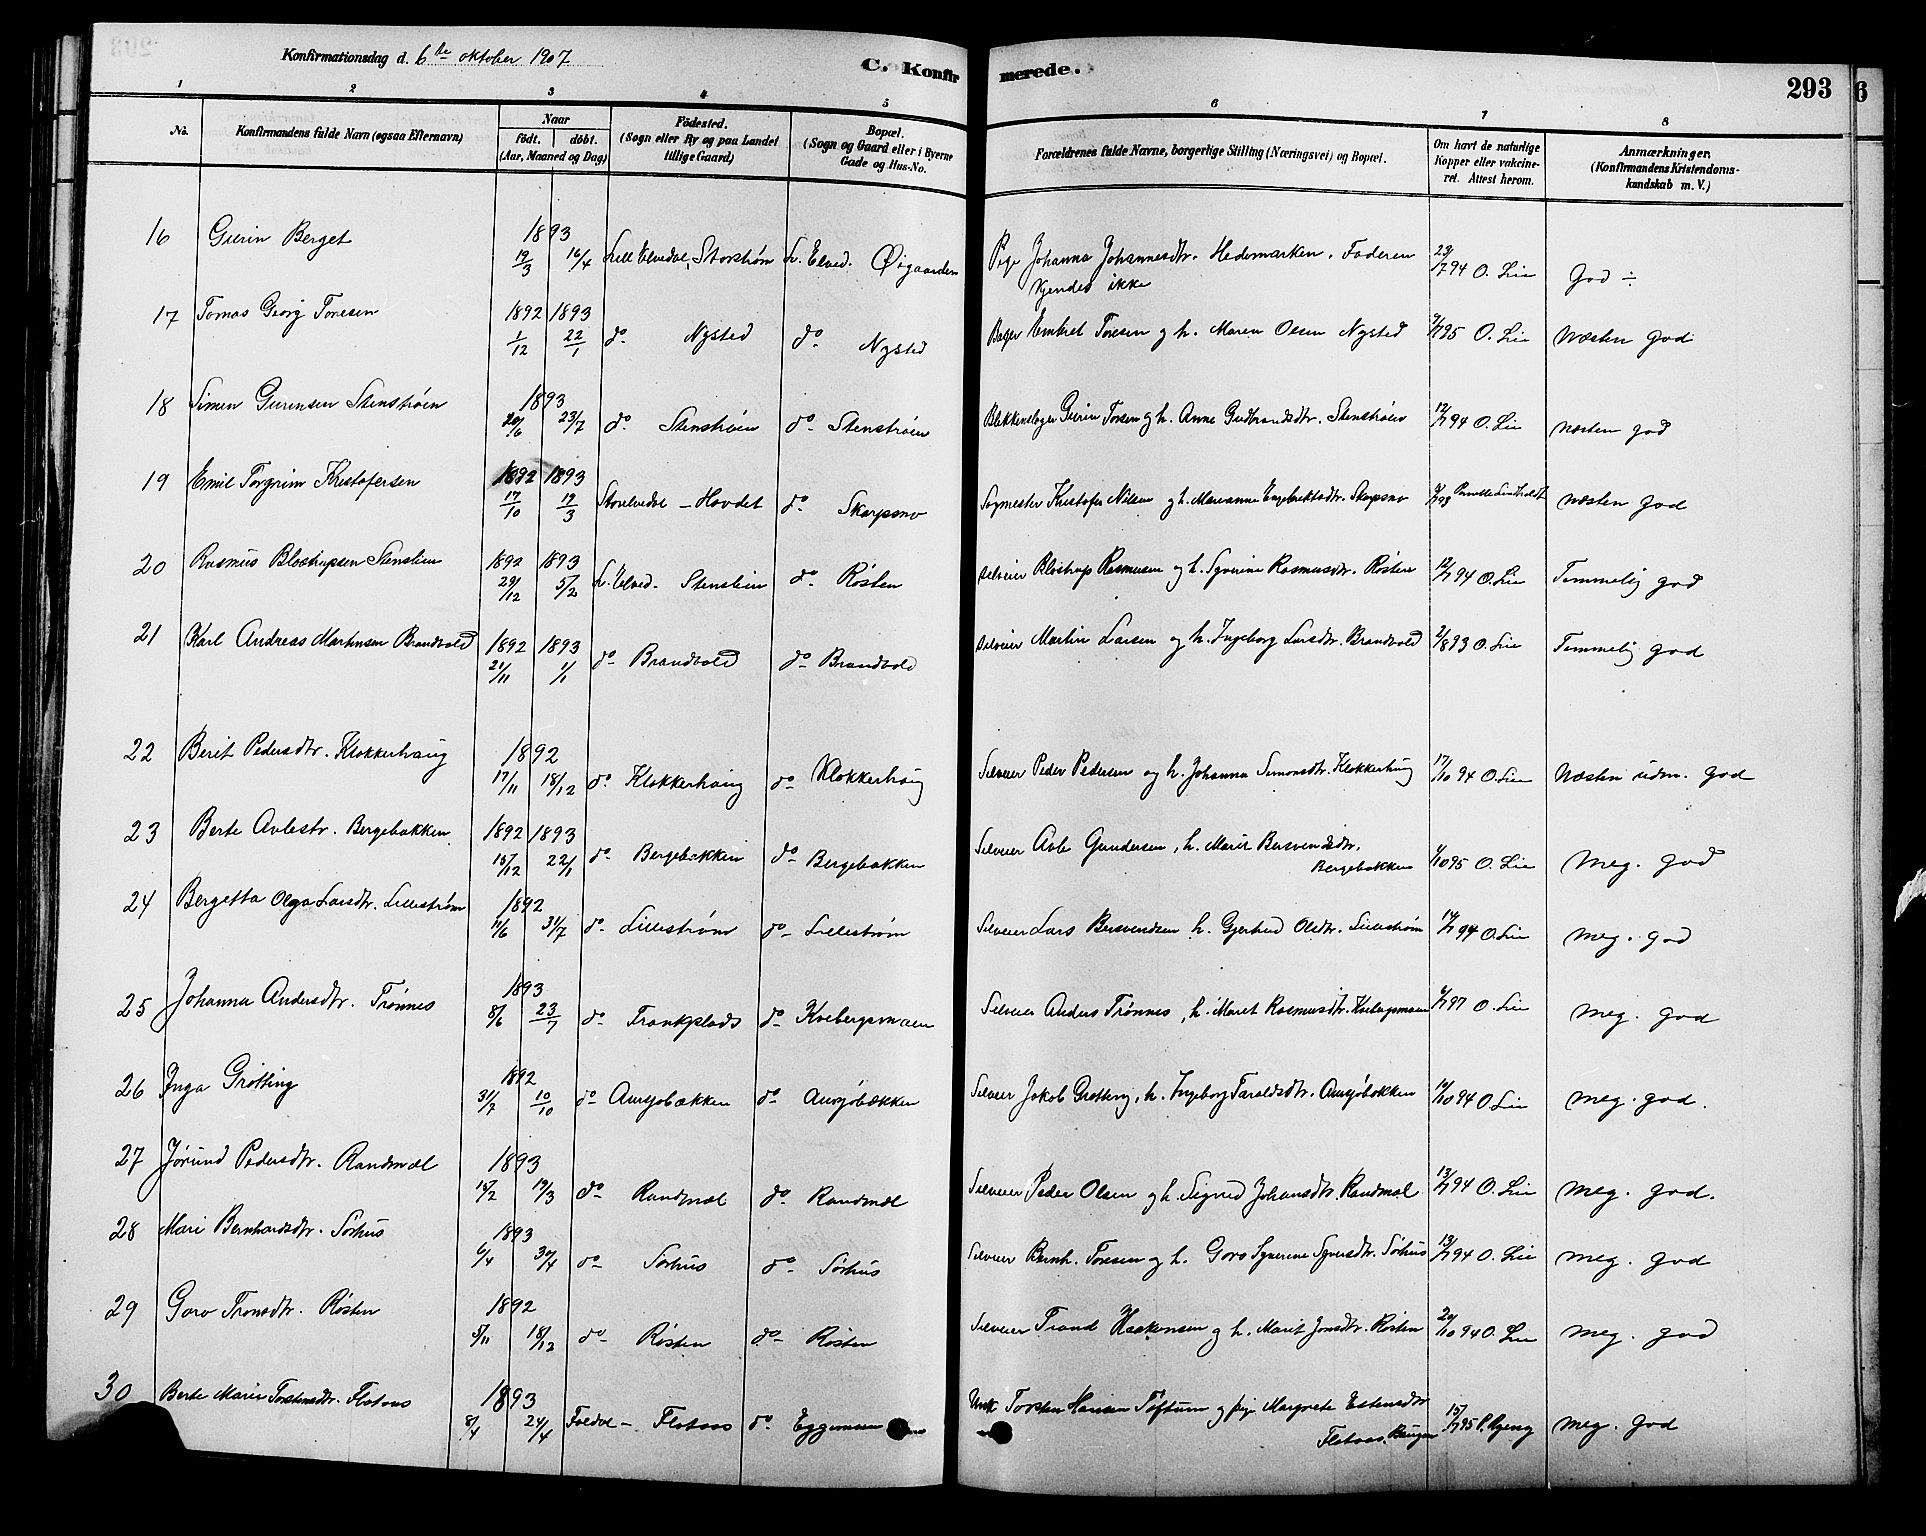 Konfirmationsdag d. 6te oktober 1907
C. Konfirmerede.
293
1 2 3 4 5 6 7 8
No.
Konfirmandens fulde Navn (ogsaa Efternavn)
Naar
født. døbt.
(Aar, Maaned og Dag)
Fødested.
(Sogn eller By og paa Landet
tillige Gaard)
Bopæl.
(Sogn og Gaard eller i Byerne
Gade og Hus-No.
Forældrenes fulde Navne, borgerlige Stilling (Næringsvei) og Bopæl.
Om havt de naturlige
Kopper eller vakcine-
ret. Attest herom.
Anmærkninger
(Konfirmandens Kristendoms-
kundskab m. V.)
16 Gurin Berget 1893 19/3 16/4 Lill Elvedal, Storstrøm L. Elved. Øigaarden Pige Johanna Johannesdtr. Hedemarken. Faderen
kjendes ikke 23/7 94 O. Lie God ÷
17 Tomas Georg Toresen 1892 1/12 1893 22/1 do Nysted do Nysted Bager Embret Toresen og h. Maren Olsen Nysted 9/7 95 O. Lie Næsten god
18 Simen Gurinsen Stenstrøen 1893 20/6 23/7 do Stenstrøen do Stenstrøen Blikkenslager Gurin Toresen og h. Anne Gudbrandsdtr. Stenstrøen 12/7 94 O. Lie næsten god
19 Emil Torgrim Kristofersen 1892 17/10 1893 19/3 Storelvedal - Hovdet do Skarpsno Sagmester Kristofer Nilsen og h. Marianne Engebretsdtr. Skarpsno næsten god
20 Rasmus Blostrupsen Stenslien 1892 29/12 1893 5/2 L. Elved. Stenslien do Røsten Selveier Blostrup Rasmusen og h. Syverine Rasmusdtr. Røsten 12/7 94 O. Lie Temmelig god
21 Karl Andreas Martinsen Brandvold 1892 21/11 1893 1/1 do Brandvold do Brandvold Selveier Martin Larsen og h. Ingeborg Larsdtr. Brandvold 2/8 93 O. Lie Temmelig god
22 Berit Pedersdtr. Klokkerhaug 1892 17/11 18/12 do Klokkerhaug do Klokkerhaug Selveier Peder Pedersen og h. Johanna Simonsdtr. Klokkerhaug 17/10 94 O. Lie Næsten udm. god
23 Berte Avlestr. Bergebakken 1892 15/12 1893 22/1 do Bergebakken do Bergebakken Selveier Avle Gundersen, h. Marit Bersvendsdtr.
Bergebakken 1/10 95 O. Lie Meg. god
24 Bergetta Olga Larsdtr. Lillestrøm 1892 11/6 31/7 do Lillestrøm do Lillestrøm Selveier Lars Bersvendsen h. Gjertrud Olsdtr. Lillestrøm 14/7 94 O. Lie meg. god
25 Johanna Andersdtr. Trønnes 1893 8/6 23/7 do Trankplads do Kvebergsmoen Selveier Anders Trønnes, h. Maret Rasmusdtr. Kvebergsmoen 6/7 97 O. Lie meg. god
26 Inga Grøtting 1892 31/7 10/10 do Aursjøbækken do Aursjøbækken Selveier Jakob Grøtting, h. Ingeborg Taraldsdtr. Aursjøbækken 19/10 94 O. Lie meg. god.
27 Jørund Pedersdtr. Randmæl 1893 15/2 19/3 do Randmæl do Randmæl Selveier Peder Olsen og h. Sigrid Johansdtr. Randmæl 13/7 94 O. Lie meg. god.
28 Mari Bernhardsdtr. Sørhus 1893 6/4 30/4 do Sørhus do Sørhus Selveier Bernh. Toresen og h. Goro Syverine Syversdtr. Sørhus 13/7 94 O. Lie meg. god
29 Goro Tronsdtr. Røsten 1892 5/11 18/12 do Røsten do Røsten Selveier Trond Haakensen og h. Marit Jonsdtr. Røsten 20/10 94 O. Lie meg. god
30 Berte Marie Torstensdtr. Flataas 1893 8/4 24/4 Foldal - Flataas do Eggemoen Unk. Torsten Hansen Tøftum og pige Margrete Estensdtr
Flataas 15/7 95 meg. god